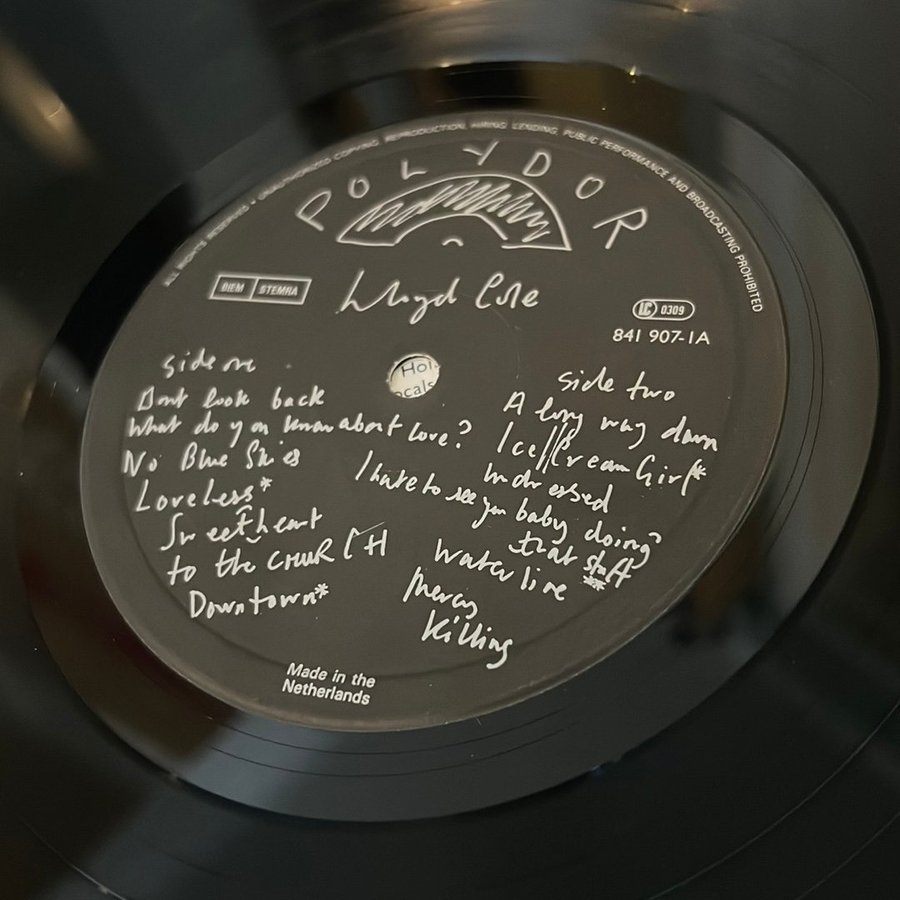 ALL RIGHTS RESERVED • UNAUTHORIZED COPYING, REPRODUCTION, HIRING, LENDING, PUBLIC PERFORMANCE AND BROADCASTING PROHIBITED
POLYDOR
BIEM STEMRA
Lloyd Cole
LC 0309
841 907-1A
Hol
ocals
side one
Dont look back
What do you know about love?
No Blue Skies
Loveless*
Sweetheart
to the CHURCH
Downtown*
side two
A long way down
Ice Cream Girl*
Undressed
I hate to see you baby doing
that stuff
Waterline **
Mercy
Killing
Made in the
Netherlands